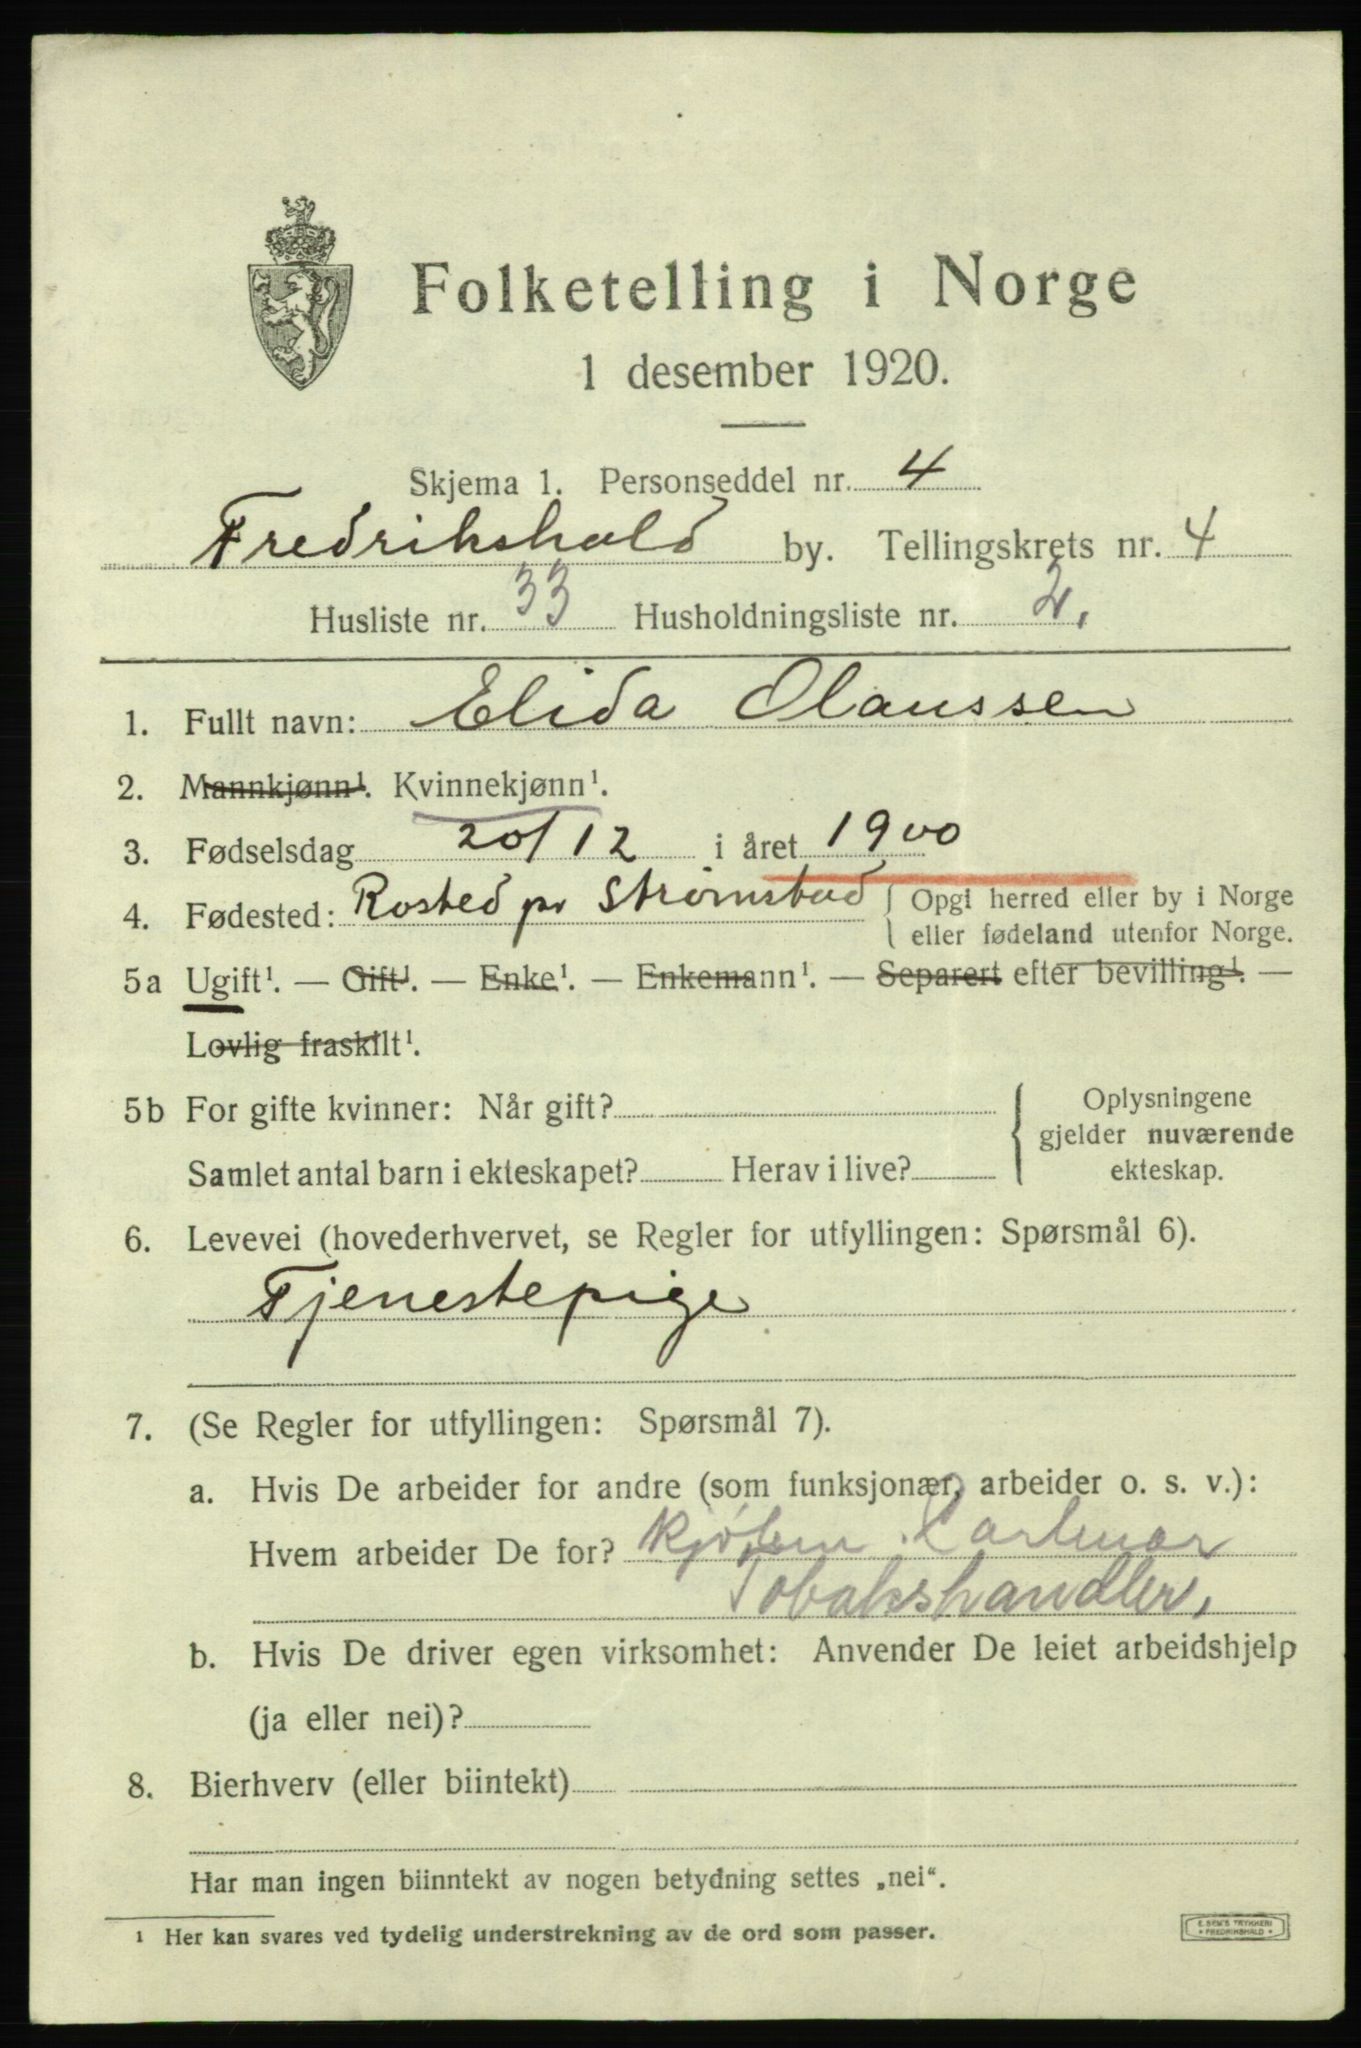 Folketelling i Norge
1 desember 1920.
Skjema 1. Personseddel nr. 4
Fredrikshald by. Tellingskrets nr. 4
Husliste nr. 33 Husholdningsliste nr. 2.
1. Fullt navn: Elida Olaussen
2. Mannkjønn¹. Kvinnekjønn¹.
3. Fødselsdag 20/12 i året 1900
4. Fødested: Rosted pr Strömstad { Opgi herred eller by i Norge
eller fødeland utenfor Norge.
5a Ugift¹. — Gift¹. — Enke¹. — Enkemann¹. — Separert efter bevilling¹. —
Lovlig fraskilt¹.
5b For gifte kvinner: Når gift? { Oplysningene
gjelder nuværende
Samlet antal barn i ekteskapet? Herav i live? ekteskap.
6. Levevei (hovederhvervet, se Regler for utfyllingen: Spørsmål 6).
Tjenestepige
7. (Se Regler for utfyllingen: Spørsmål 7).
a. Hvis De arbeider for andre (som funksjonær, arbeider o. s. v.):
Hvem arbeider De for?
Tobakshandler.
b. Hvis De driver egen virksomhet: Anvender De leiet arbeidshjelp
(ja eller nei)?
8. Bierhverv (eller biintekt)
Har man ingen biinntekt av nogen betydning settes „nei“.
¹ Her kan svares ved tydelig understrekning av de ord som passer.
E. SEM'S TRYKKERI
* FREDRIKSHALD *